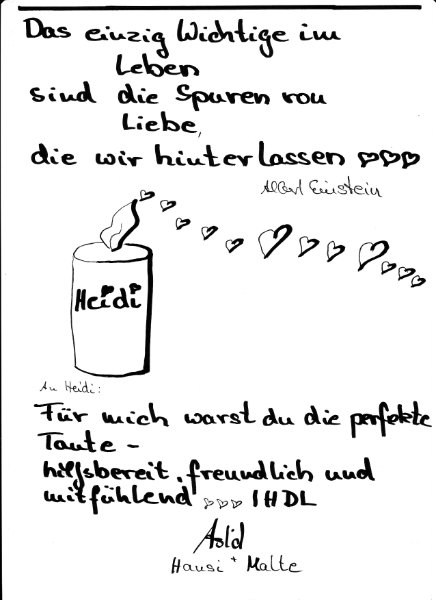 Das einzig Wichtige im
Leben
sind die Spuren von
Liebe,
die wir hinterlassen
Albert Einstein
Heidi
An Heidi:
Für mich warst du die perfekte
Tante -
hilfsbereit, freundlich und
mitfühlend IHDL
Hansi + Malte